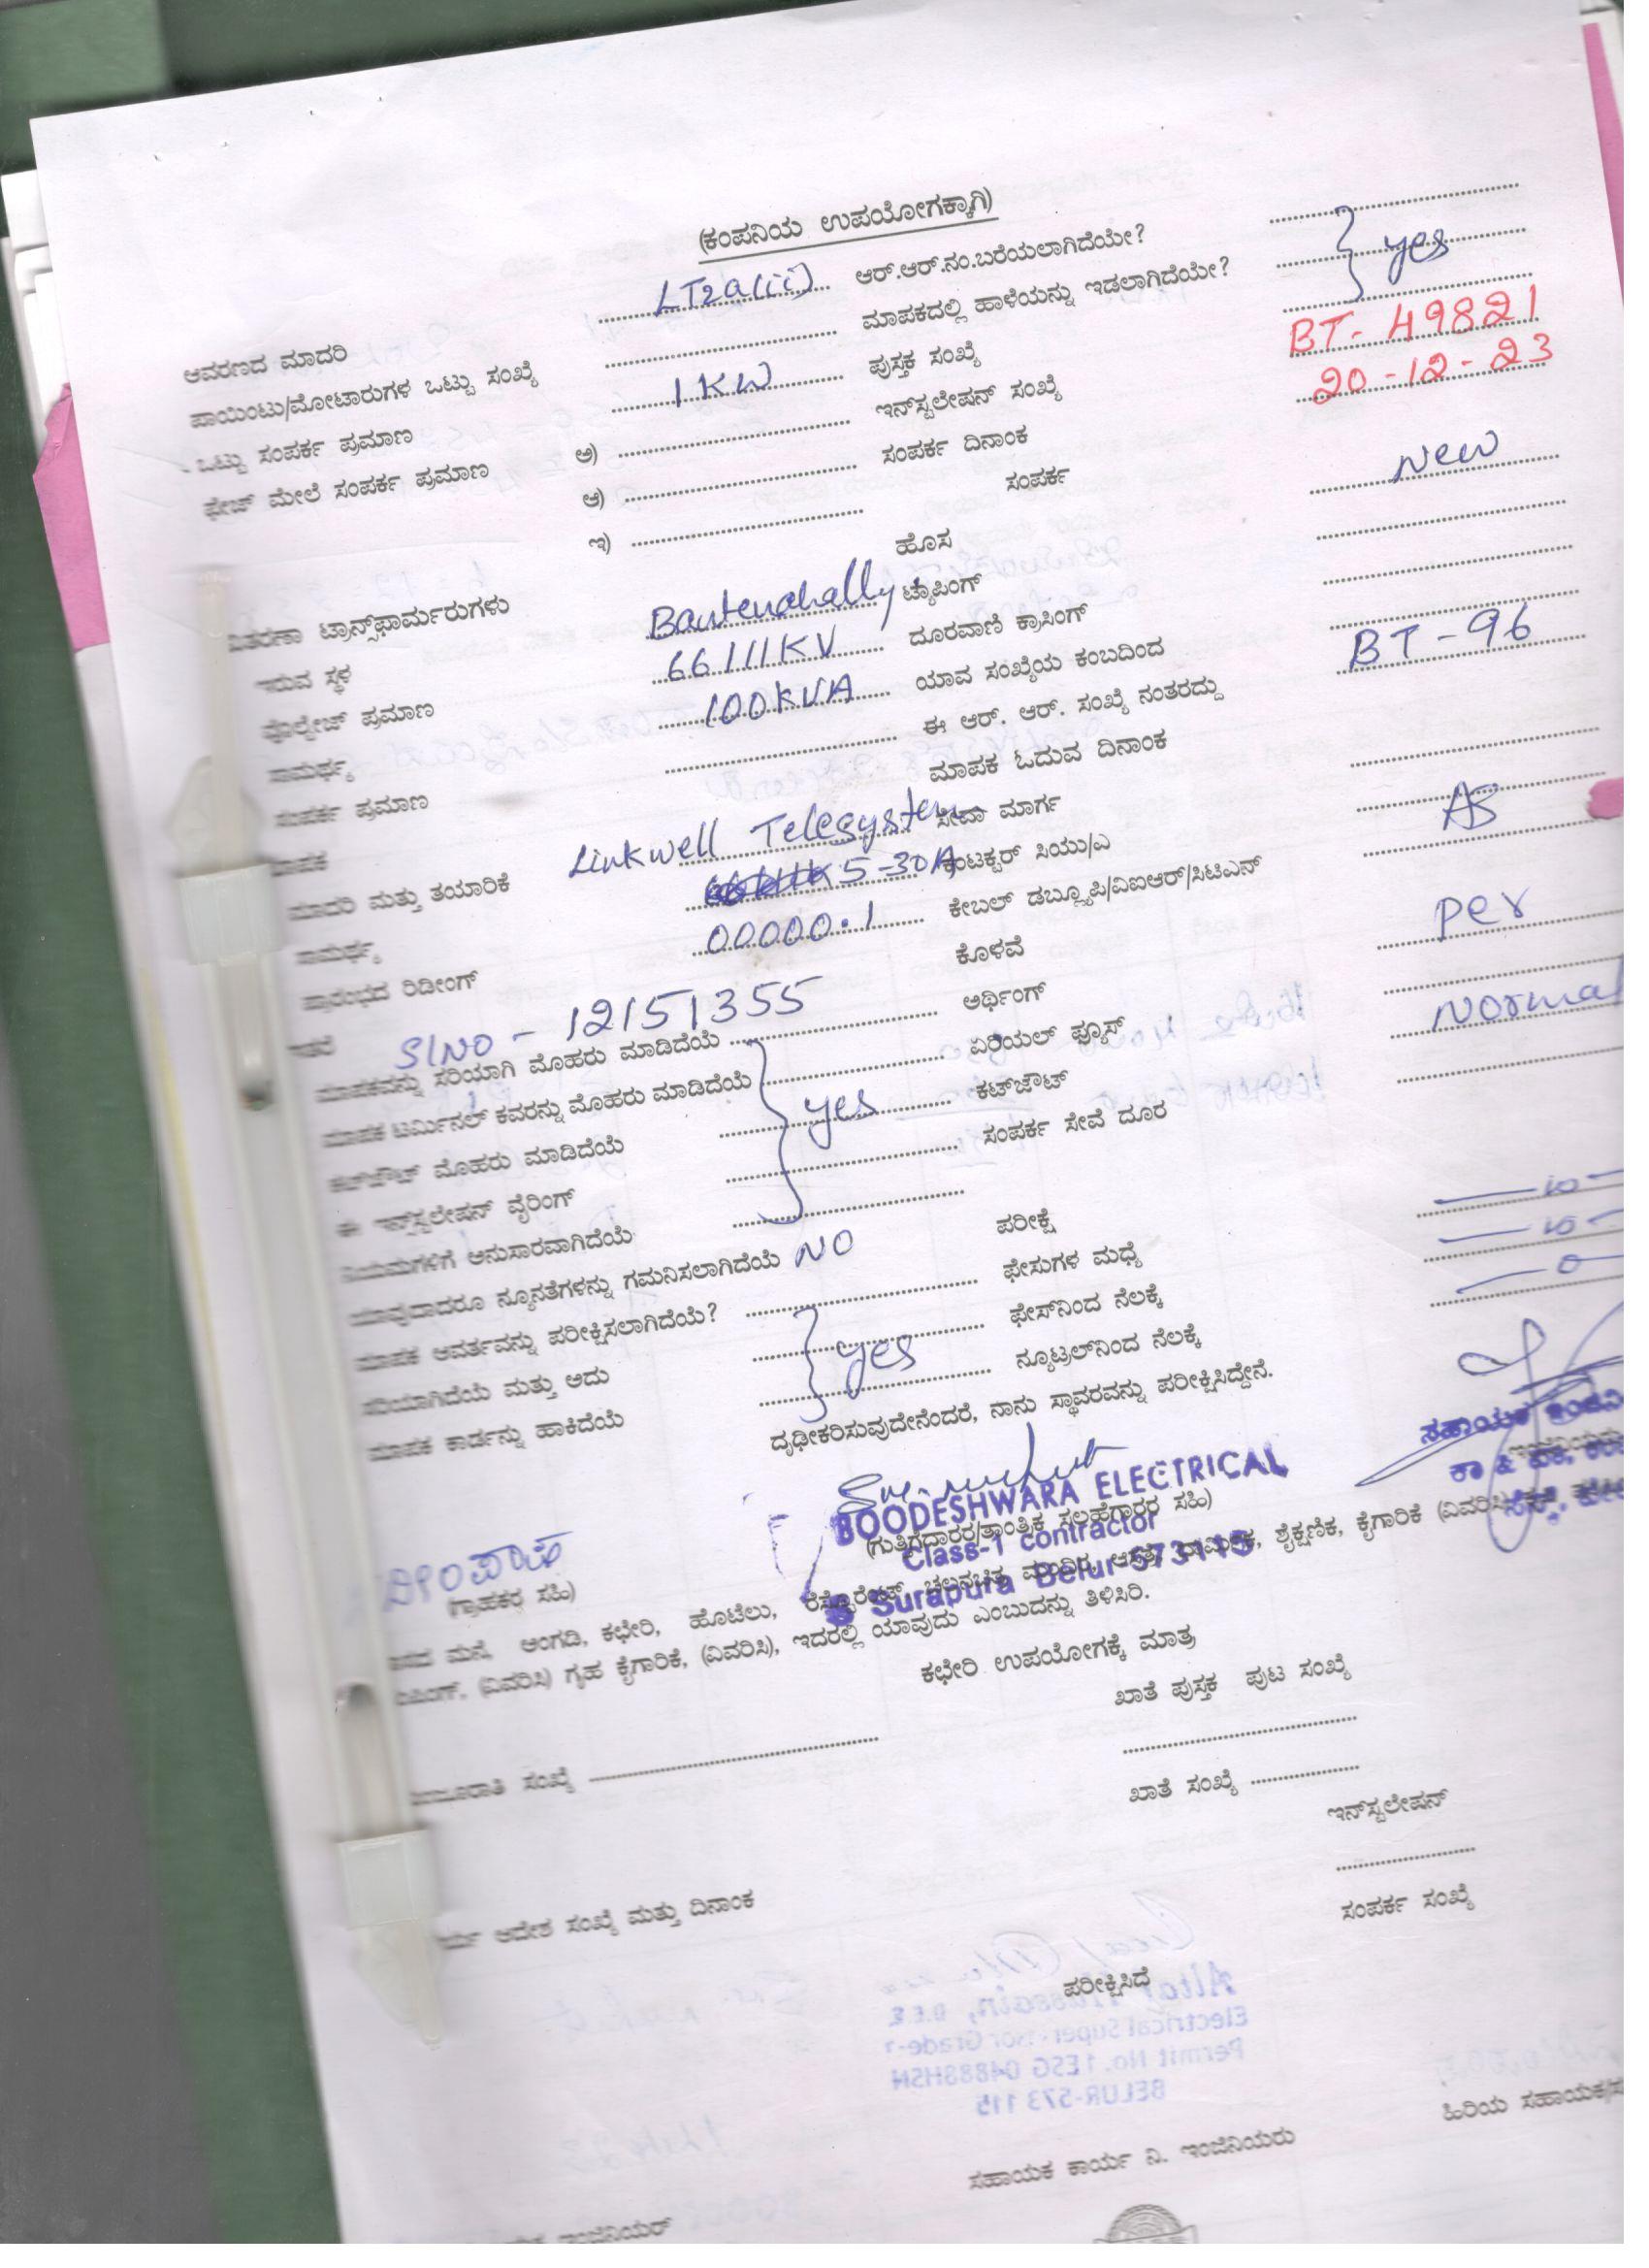 (ಕಂಪನಿಯ ಉಪಯೋಗಕ್ಕಾಗಿ)
ಆವರಣದ ಮಾದರಿ LT2a(ii) ಆರ್.ಆರ್.ನಂ.ಬರೆಯಲಾಗಿದೆಯೇ?
ಪಾಯಿಂಟು/ಮೋಟಾರುಗಳ ಒಟ್ಟು ಸಂಖ್ಯೆ ಮಾಪಕದಲ್ಲಿ ಹಾಳೆಯನ್ನು ಇಡಲಾಗಿದೆಯೇ? yes
ಒಟ್ಟು ಸಂಪರ್ಕ ಪ್ರಮಾಣ 1 KW ಪುಸ್ತಕ ಸಂಖ್ಯೆ
ಫೇಜ್ ಮೇಲೆ ಸಂಪರ್ಕ ಪ್ರಮಾಣ ಅ) ಇನ್‌ಸ್ಟಲೇಷನ್ ಸಂಖ್ಯೆ BT-49821
ಆ) ಸಂಪರ್ಕ ದಿನಾಂಕ 20-12-23
ಇ) ಸಂಪರ್ಕ
ಹೊಸ New
ವಿತರಣಾ ಟ್ರಾನ್ಸ್‌ಫಾರ್ಮರುಗಳು ಟ್ಯಾಪಿಂಗ್
ಇರುವ ಸ್ಥಳ ದೂರವಾಣಿ ಕ್ರಾಸಿಂಗ್
ವೋಲ್ಟೇಜ್ ಪ್ರಮಾಣ 66/11KV ಯಾವ ಸಂಖ್ಯೆಯ ಕಂಬದಿಂದ
ಸಾಮರ್ಥ್ಯ 100KVA ಈ ಆರ್. ಆರ್. ಸಂಖ್ಯೆ ನಂತರದ್ದು BT-96
ಸಂಪರ್ಕ ಪ್ರಮಾಣ ಮಾಪಕ ಓದುವ ದಿನಾಂಕ
ಮಾಪಕ ಸೇವಾ ಮಾರ್ಗ
ಮಾದರಿ ಮತ್ತು ತಯಾರಿಕೆ Linkwell Telesystem ಕಂಟಕ್ಟರ್ ಸಿಯು/ಎ AB
ಸಾಮರ್ಥ್ಯ 5-30A ಕೇಬಲ್ ಡಬ್ಲ್ಯೂಪಿ/ವಿಐಆರ್/ಸಿಟಿಎನ್
ಪ್ರಾರಂಭದ ರಿಡೀಂಗ್ 00000.1 ಕೊಳವೆ per
SlNO - 12151355 ಅರ್ಥಿಂಗ್
ಮಾಪಕವನ್ನು ಸರಿಯಾಗಿ ಮೊಹರು ಮಾಡಿದೆಯೆ ಏರಿಯಲ್ ಫ್ಯೂಸ್ Normal
ಮಾಪಕ ಟರ್ಮಿನಲ್ ಕವರನ್ನು ಮೊಹರು ಮಾಡಿದೆಯೆ yes ಕಟ್‌ಔಟ್
ಕಟ್‌ಔಟ್ ಮೊಹರು ಮಾಡಿದೆಯೆ ಸಂಪರ್ಕ ಸೇವೆ ದೂರ
ಈ ಇನ್‌ಸ್ಟಲೇಷನ್ ವೈರಿಂಗ್
ನಿಯಮಗಳಿಗೆ ಅನುಸಾರವಾಗಿದೆಯೆ ಪರೀಕ್ಷೆ
ಯಾವುದಾದರೂ ನ್ಯೂನತೆಗಳನ್ನು ಗಮನಿಸಲಾಗಿದೆಯೆ NO ಫೇಸುಗಳ ಮಧ್ಯೆ
ಮಾಪಕ ಆವರ್ತವನ್ನು ಪರೀಕ್ಷಿಸಲಾಗಿದೆಯೆ? ಫೇಸ್‌ನಿಂದ ನೆಲಕ್ಕೆ
ಸರಿಯಾಗಿದೆಯೆ ಮತ್ತು ಅದು yes ನ್ಯೂಟ್ರಲ್‌ನಿಂದ ನೆಲಕ್ಕೆ
ಮಾಪಕ ಕಾರ್ಡನ್ನು ಹಾಕಿದೆಯೆ ದೃಢೀಕರಿಸುವುದೇನೆಂದರೆ, ನಾನು ಸ್ಥಾವರವನ್ನು ಪರೀಕ್ಷಿಸಿದ್ದೇನೆ.
ಸಹಾಯಕ
BOODESHWARA ELECTRICAL
(ಗುತ್ತಿಗೆದಾರರ/ತಾಂತ್ರಿಕ ಸಲಹೆಗಾರರ ಸಹಿ)
Class-1 contractor
Surapura Belur-573115
(ಗ್ರಾಹಕರ ಸಹಿ)
ಮನೆ, ಅಂಗಡಿ, ಕಛೇರಿ, ಹೊಟೆಲು, ರೆಸ್ಟೊರೆಂಟ್, ಚಲನಚಿತ್ರ ಮಂದಿರ, ಶೈಕ್ಷಣಿಕ, ಕೈಗಾರಿಕೆ
(ವಿವರಿಸಿ) ಗೃಹ ಕೈಗಾರಿಕೆ, (ವಿವರಿಸಿ), ಇದರಲ್ಲಿ ಯಾವುದು ಎಂಬುದನ್ನು ತಿಳಿಸಿರಿ.
ಕಛೇರಿ ಉಪಯೋಗಕ್ಕೆ ಮಾತ್ರ
ಖಾತೆ ಪುಸ್ತಕ ಪುಟ ಸಂಖ್ಯೆ
ಸಂಖ್ಯೆ
ಖಾತೆ ಸಂಖ್ಯೆ
ಇನ್‌ಸ್ಟಲೇಷನ್
ಆದೇಶ ಸಂಖ್ಯೆ ಮತ್ತು ದಿನಾಂಕ
ಸಂಪರ್ಕ ಸಂಖ್ಯೆ
ಪರೀಕ್ಷಿಸಿದೆ
ಹಿರಿಯ
ಸಹಾಯಕ ಕಾರ್ಯ ನಿ. ಇಂಜಿನಿಯರು
ಇಂಜಿನಿಯರ್